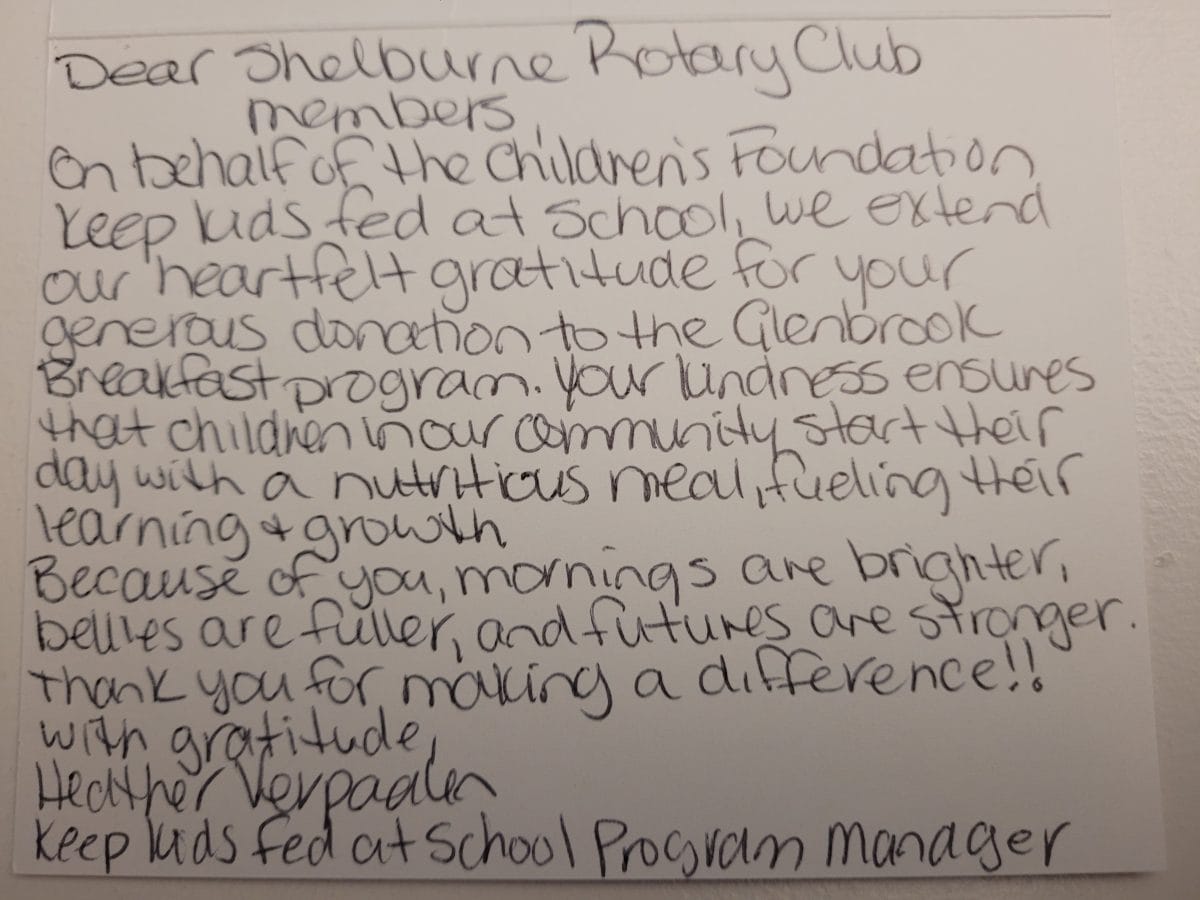 Dear Shelburne Rotary Club
members,
On behalf of the Children's Foundation
Keep kids fed at School, we extend
our heartfelt gratitude for your
generous donation to the Glenbrook
Breakfast program. Your kindness ensures
that children in our community start their
day with a nutritious meal, fueling their
learning & growth.
Because of you, mornings are brighter,
bellies are fuller, and futures are stronger.
Thank you for making a difference!!
with gratitude,
Heather Verpaalen
Keep kids fed at School Program Manager